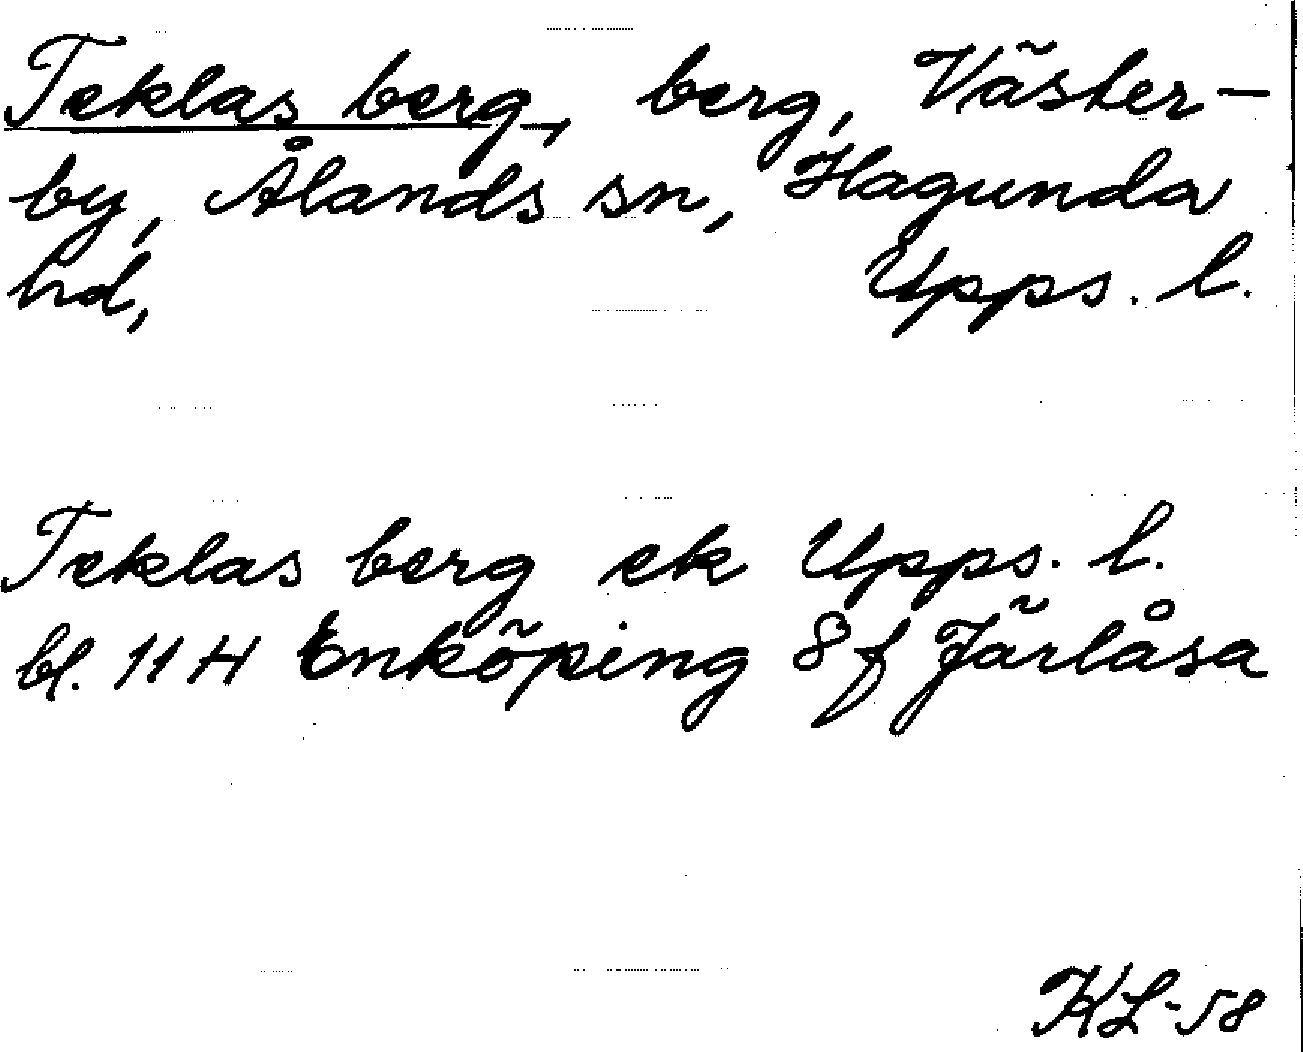 Teklas berg, berg, Väster-
by, Ålands sn, Hagunda
hd, Upps. l.
Teklas berg ek Upps. l.
bl. 11 H Enköping 8f Järlåsa
KL-58